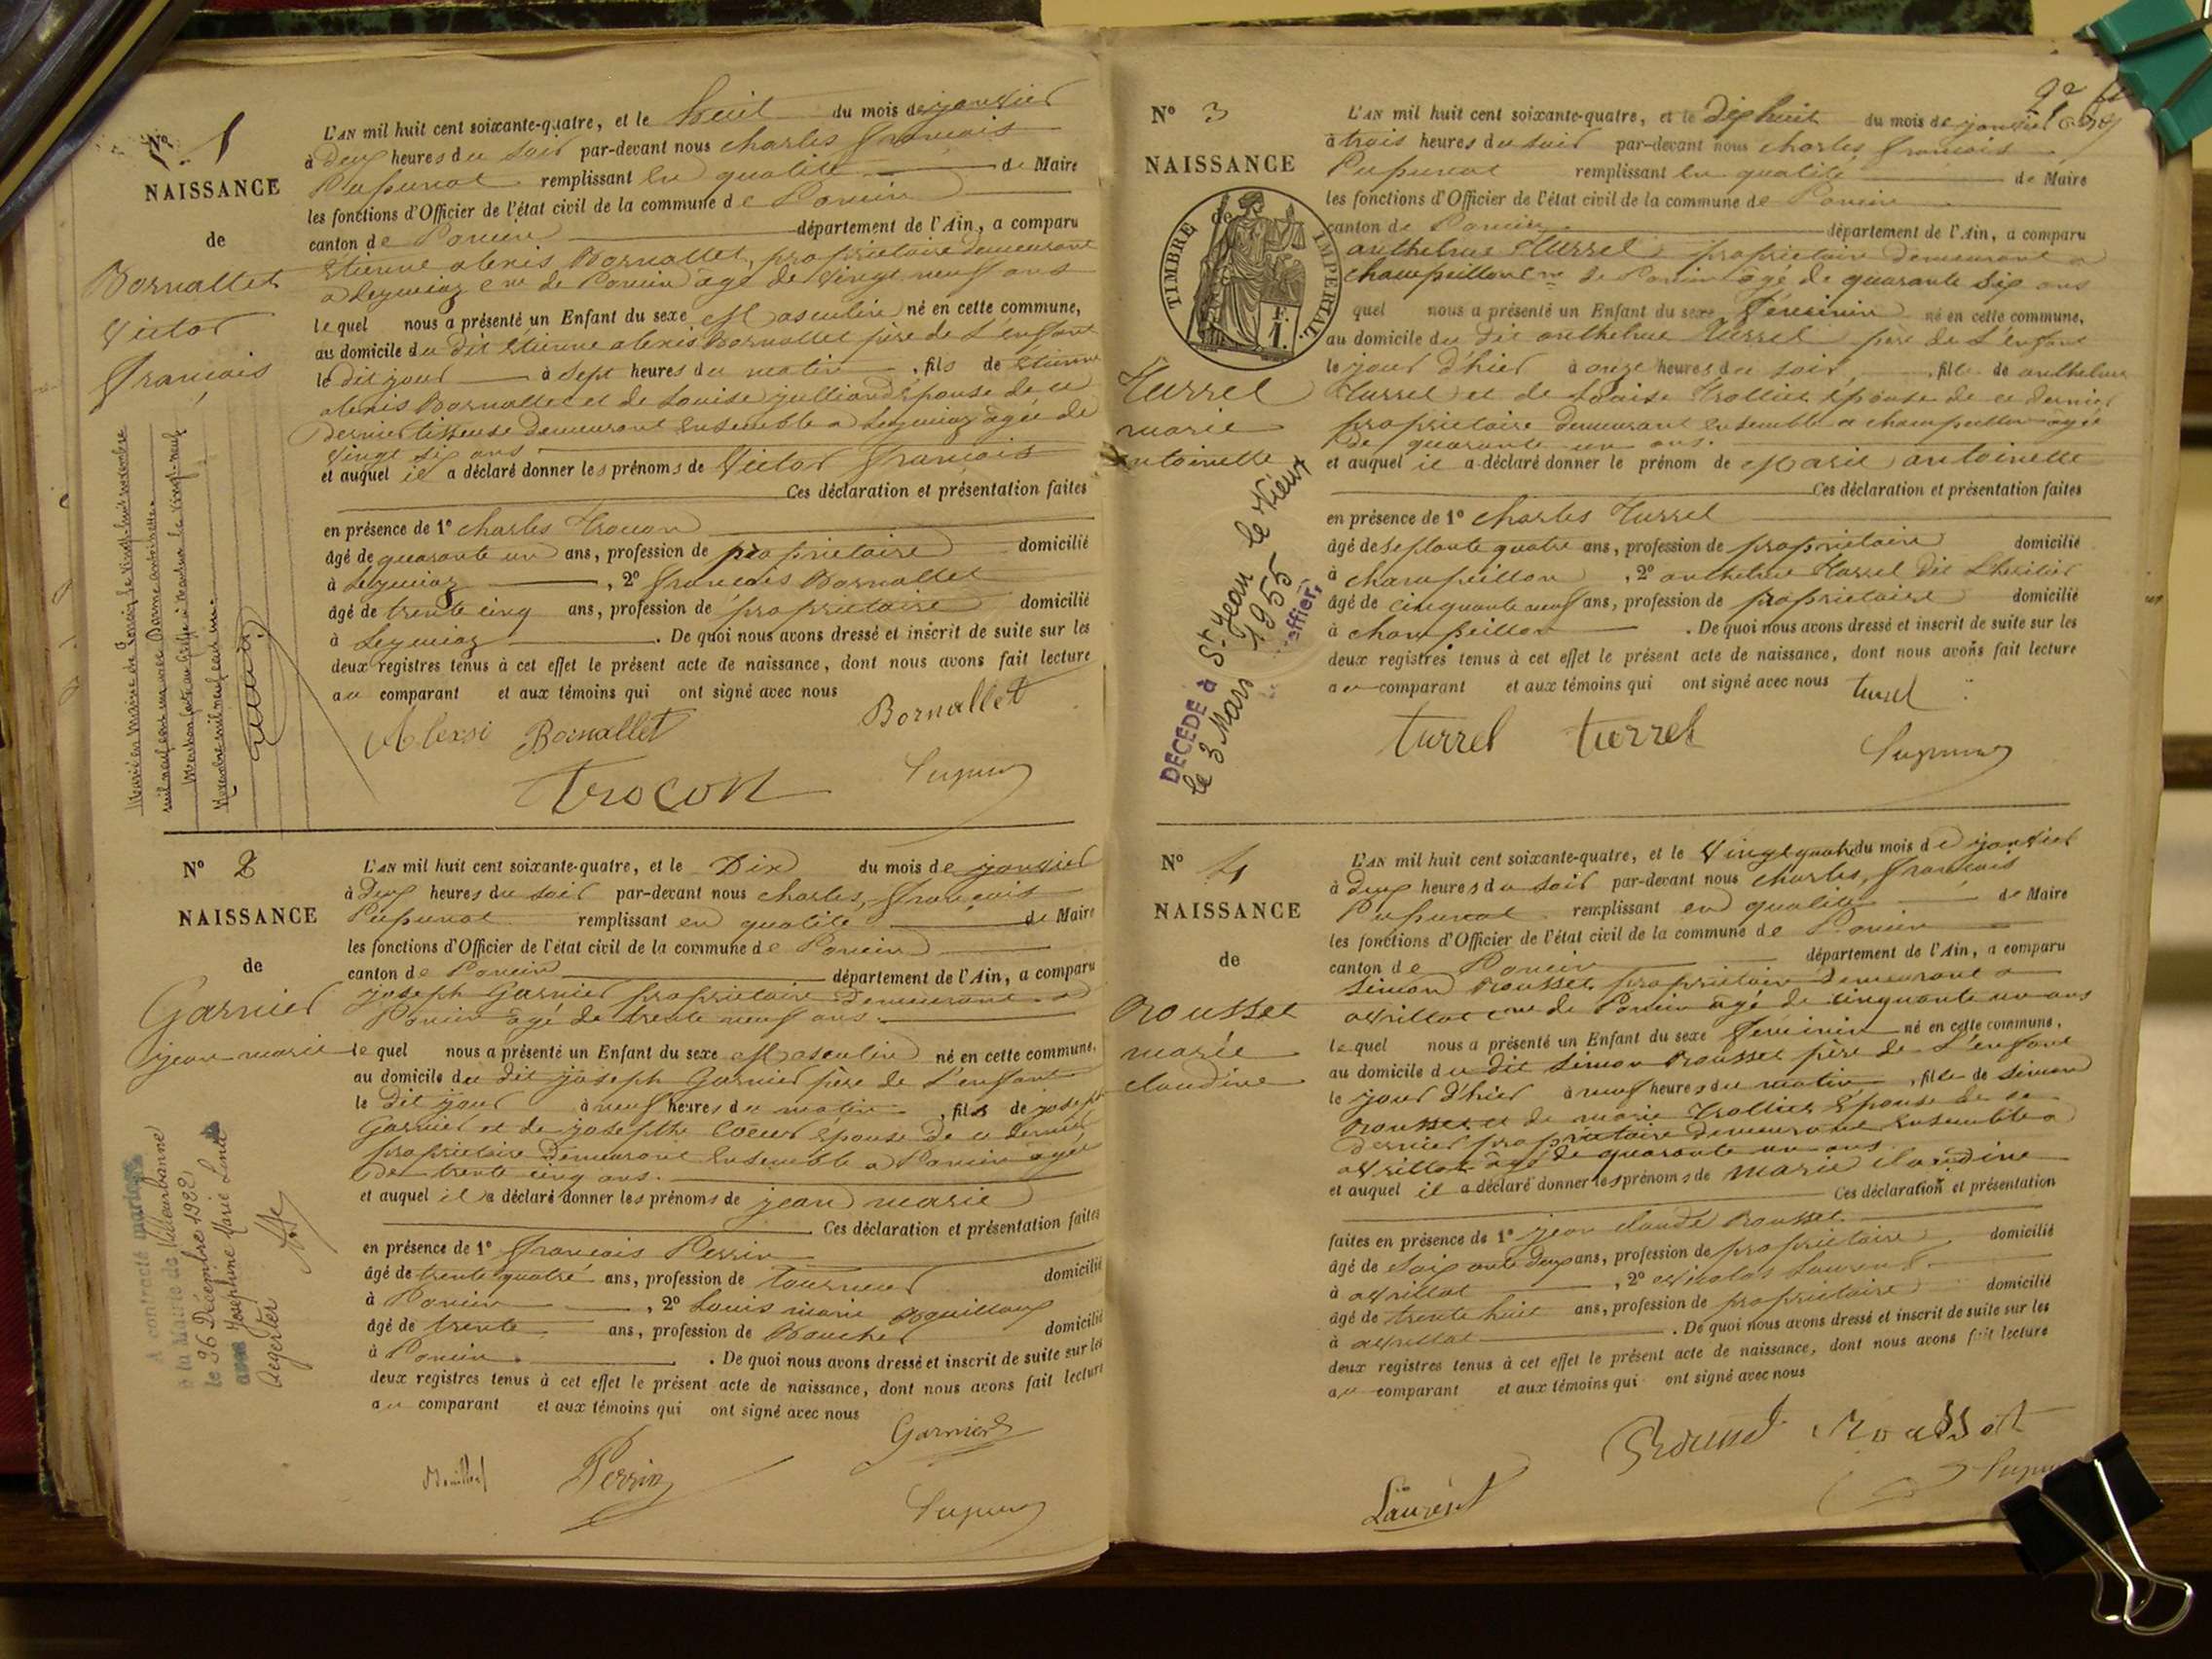 N° 1
NAISSANCE
de
Bornallet
Victor
François
L'AN mil huit cent soixante-quatre, et le huit du mois de janvier
à Deux heures du soir par-devant nous charles françois
remplissant en qualité de Maire
les fonctions d'Officier de l'état civil de la commune de Poncin
canton de Poncin département de l'Ain, a comparu
Etienne alexis Bornallet, propriétaire demeurant
a Leymiaz cne de Poncin âgé de vingt neuf ans
lequel nous a présenté un Enfant du sexe Masculin né en cette commune,
au domicile du dit Etienne alexis Bornallet père de L'enfant
le dit jour à sept heures du matin, fils de Etienne
alexis Bornallet et de Louise julliand Epouse de ce
dernier tisseuse demeurant Ensemble a Leymiaz âgée de
vingt six ans
et auquel il a déclaré donner les prénoms de Victor François
Ces déclaration et présentation faites
en présence de 1° charles Trocon
âgé de quarante un ans, profession de propriétaire domicilié
à Leymiaz, 2° françois Bornallet
âgé de trente cinq ans, profession de propriétaire domicilié
à Leymiaz. De quoi nous avons dressé et inscrit de suite sur les
deux registres tenus à cet effet le présent acte de naissance, dont nous avons fait lecture
au comparant et aux témoins qui ont signé avec nous
Bornallet
Bornallet
Trocon
N° 2
NAISSANCE
de
Garnier
jean marie
A contracté mariage
à la Mairie de Villeurbanne
le 26 Décembre 1922
avec Joséphine Marie
Aegerter
L'AN mil huit cent soixante-quatre, et le Dix du mois de janvier
à Deux heures du soir par-devant nous charles, françois
remplissant en qualité de Maire
les fonctions d'Officier de l'état civil de la commune de Poncin
canton de Poncin département de l'Ain, a comparu
joseph Garnier propriétaire Demeurant a
Poncin âgé de trente neuf ans.
lequel nous a présenté un Enfant du sexe Masculin né en cette commune,
au domicile du dit joseph Garnier père de L'enfant
le dit jour à neuf heures du matin, fils de joseph
Garnier et de josephte Coeur Epouse de ce dernier
propriétaire demeurant Ensemble a Poncin âgée
de trente cinq ans.
et auquel il a déclaré donner les prénoms de jean marie
Ces déclaration et présentation faites
en présence de 1° François Perrin
âgé de trente quatre ans, profession de Tourneur domicilié
à Poncin, 2° Louis marie
âgé de trente ans, profession de Boucher domicilié
à Poncin. De quoi nous avons dressé et inscrit de suite sur les
deux registres tenus à cet effet le présent acte de naissance, dont nous avons fait lecture
au comparant et aux témoins qui ont signé avec nous
Garnier
Perrin
N° 3
NAISSANCE
de
TIMBRE IMPERIAL
1 F.
Turrel
marie
antoinette
DECEDE à St jean le Vieux
le 3 Mars 1955
L'AN mil huit cent soixante-quatre, et le Dix huit du mois de janvier
à trois heures du soir par-devant nous charles françois
remplissant en qualité de Maire
les fonctions d'Officier de l'état civil de la commune de Poncin
canton de Poncin département de l'Ain, a comparu
anthelme Turrel propriétaire demeurant a
champeillon cne de Poncin âgé de quarante six ans
quel nous a présenté un Enfant du sexe Féminin né en cette commune,
au domicile du dit anthelme Turrel père de L'enfant
le jour d'hier à onze heures du soir, fille de anthelme
Turrel et de Louise Trollier épouse de ce dernier
propriétaire demeurant ensemble a champeillon âgée
de quarante un ans.
et auquel il a déclaré donner le prénom de Marie antoinette
Ces déclaration et présentation faites
en présence de 1° charles Turrel
âgé de septante quatre ans, profession de propriétaire domicilié
à champeillon, 2° anthelme Turrel dit
âgé de cinquante neuf ans, profession de propriétaire domicilié
à champeillon. De quoi nous avons dressé et inscrit de suite sur les
deux registres tenus à cet effet le présent acte de naissance, dont nous avons fait lecture
au comparant et aux témoins qui ont signé avec nous turrel
turrel turrel
N° 4
NAISSANCE
de
Rousset
marie
claudine
L'AN mil huit cent soixante-quatre, et le Vingt quatre du mois de janvier
à deux heures du soir par-devant nous charles, françois
remplissant en qualité de Maire
les fonctions d'Officier de l'état civil de la commune de Poncin
canton de Poncin département de l'Ain, a comparu
simon Rousset propriétaire Demeurant a
avrillat cne de Poncin âgé de cinquante un ans
lequel nous a présenté un Enfant du sexe Féminin né en cette commune,
au domicile du dit simon Rousset père de L'enfant
le jour d'hier à neuf heures du matin, fille de simon
Rousset et de marie Trollier Epouse de ce
dernier propriétaire demeurant ensemble a
avrillat âgée de quarante un ans.
et auquel il a déclaré donner les prénoms de marie claudine
Ces déclaration et présentation
faites en présence de 1° jean claude Rousset
âgé de soixante deux ans, profession de propriétaire domicilié
à avrillat, 2° nicolas Laurent
âgé de trente huit ans, profession de propriétaire domicilié
à avrillat. De quoi nous avons dressé et inscrit de suite sur les
deux registres tenus à cet effet le présent acte de naissance, dont nous avons fait lecture
au comparant et aux témoins qui ont signé avec nous
Rousset Rousset
Laurent